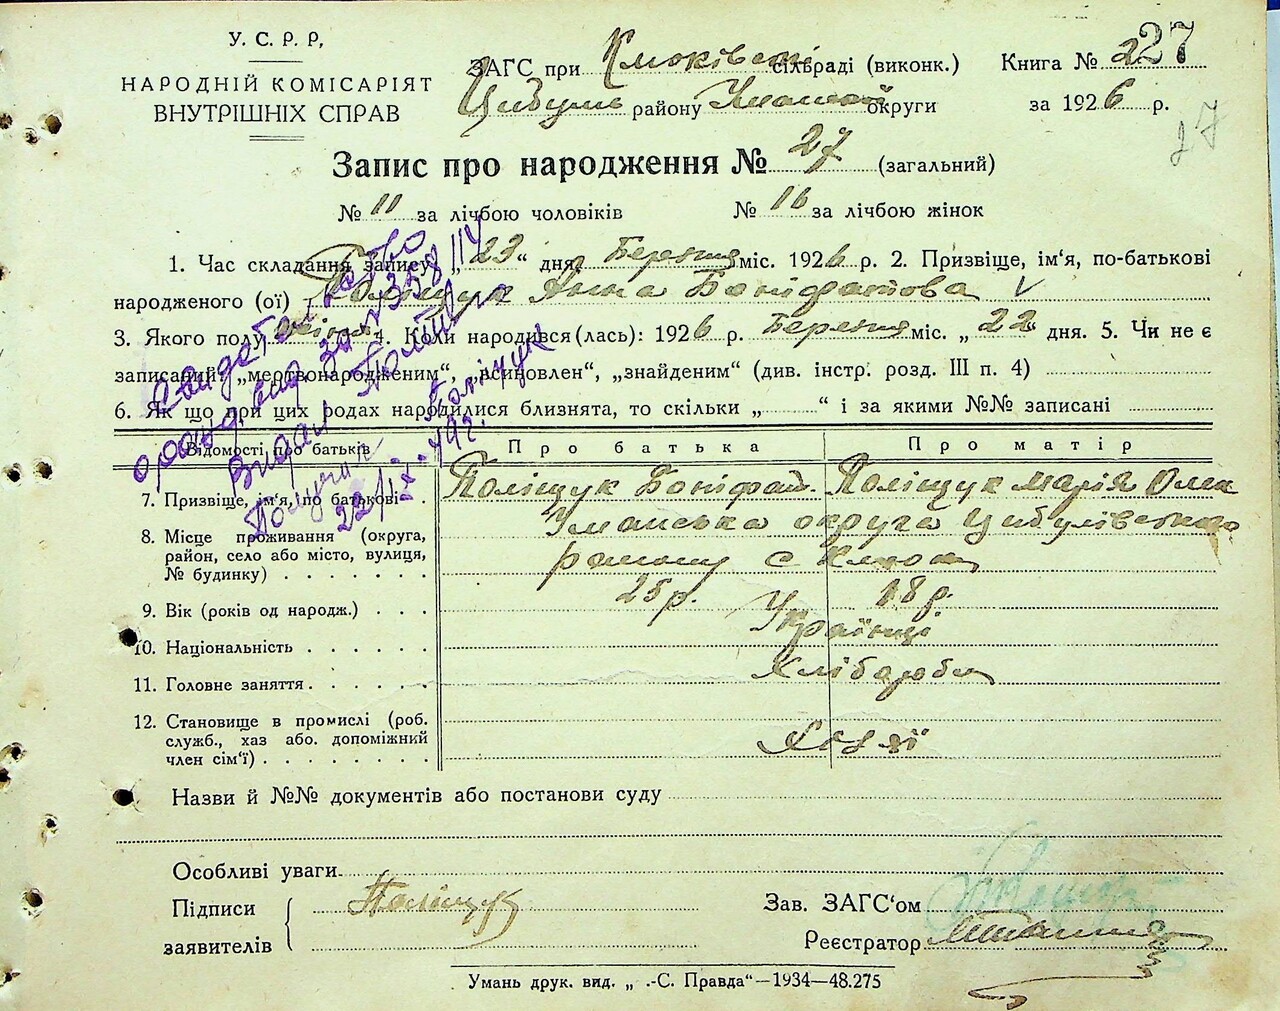 У. С. Р. Р,
НАРОДНІЙ КОМІСАРІЯТ
ВНУТРІШНІХ СПРАВ
ЗАГС при сільраді (виконк.)
району округи
Книга № 2
27
за 1926 р.
27
Запис про народження № 27 (загальний)
№ 11 за лічбою чоловіків № 16 за лічбою жінок
1. Час складання запису „23“ дня Березня міс. 1926 р. 2. Призвіще, ім‘я, по-батькові
народженого (ої) Поліщук Анна Боніфатова
3. Якого полу жіноч. 4. Коли народився (лась): 1926 р. Березня міс. „22“ дня. 5. Чи не є
записаний? „мертвонародженим“, „всиновлен“, „знайденим“ (див. інстр. розд. III п. 4)
6. Як що при цих родах народилися близнята, то скільки „ “ і за якими №№ записані
Відомості про батьків Про батька Про матір
7. Призвіще, ім‘я, по батькові Поліщук Боніфат Поліщук Марія Олек
8. Місце проживання (округа, Уманська округа Цибулівського
район, село або місто, вулиця,
№ будинку) району с
9. Вік (років од народж.) 25 р. 18 р.
10. Національність Українці
11. Головне заняття Хлібороби
12. Становище в промислі (роб.
служб., хаз або. допоміжний
член сім‘ї)
Назви й №№ документів або постанови суду
Особливі уваги
Підписи
заявителів
Поліщук
Зав. ЗАГС‘ом
Реєстратор
Умань друк. вид. „ .-С. Правда“—1934—48.275